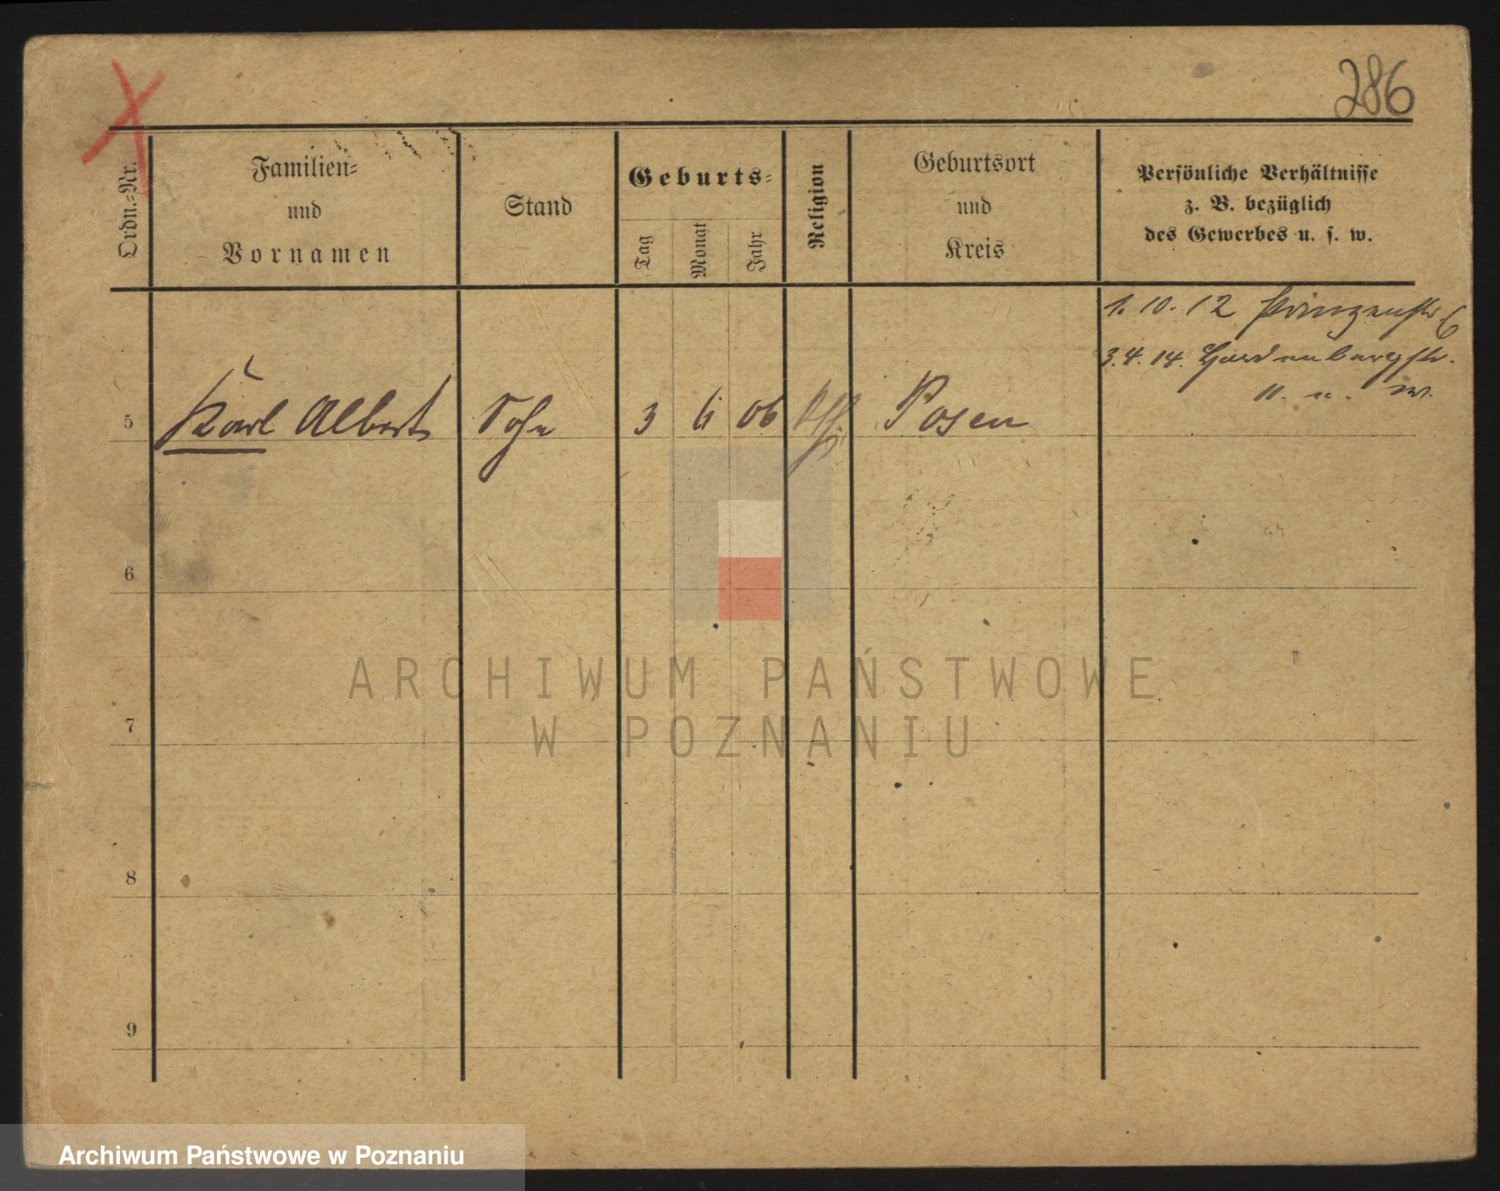 286
Ordn.-Nr.
Familien-
und
Vornamen
Stand
Geburts-
Tag
Monat
Jahr
Religion
Geburtsort
und
Kreis
Persönliche Verhältnisse
z. B. bezüglich
des Gewerbes u. s. w.
1. 10. 12 Prinzenstr 6
3. 4. 14. Hardenbergstr.
5 Karl Albert Sohn 3 6 06 Posen
6
ARCHIWUM PAŃSTWOWE
W POZNANIU
7
8
9
Archiwum Państwowe w Poznaniu